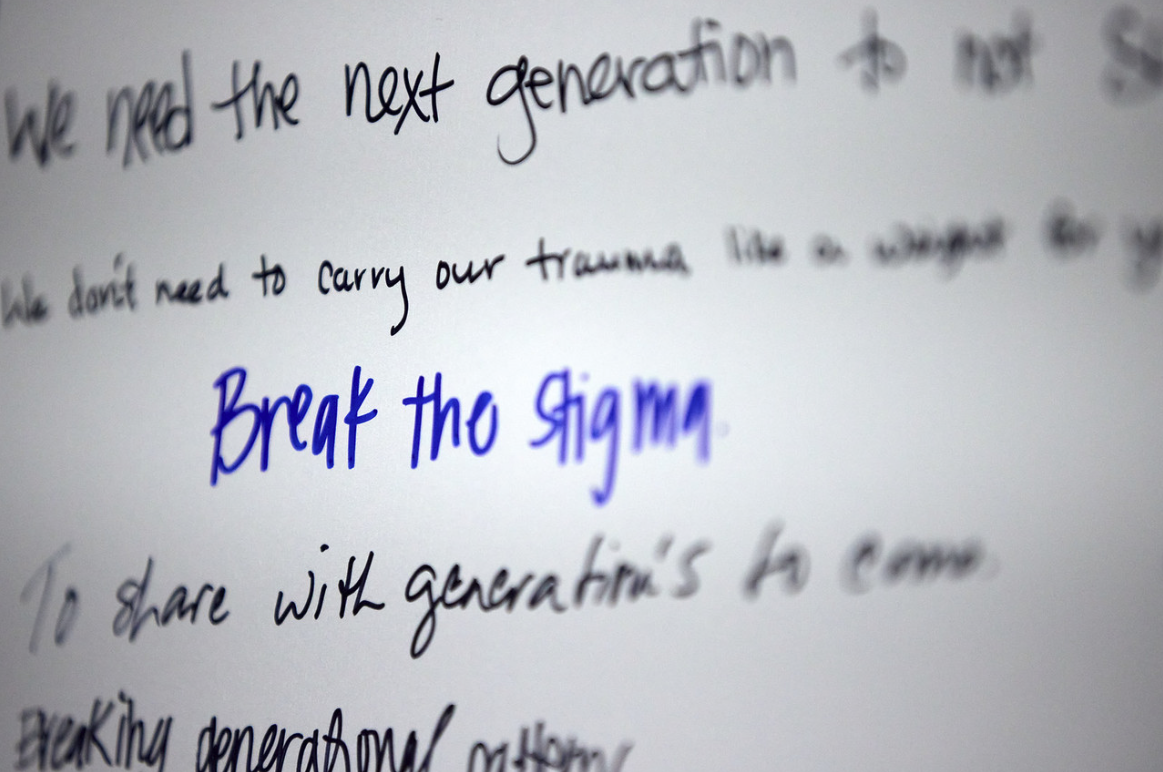 We need the next generation to not
We don't need to carry our trauma like a weight for
Break the stigma.
To share with generation's to come.
Breaking generational patterns